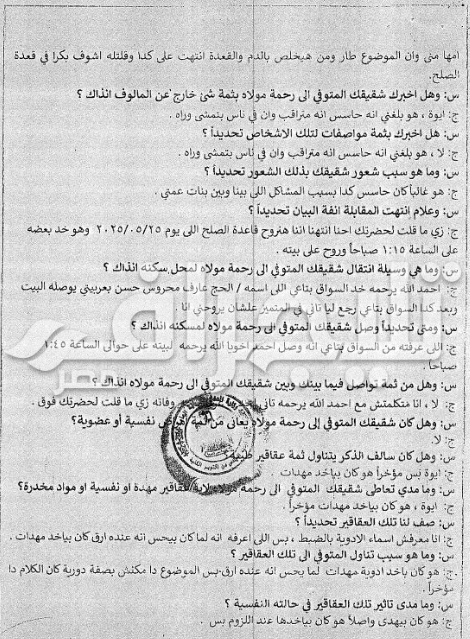 امها منى وان الموضوع طار ومن هيخلص بالدم والقعدة انتهت على كدا وقلتله اشوف بكرا في قعدة
الصلح.
س: وهل اخبرك شقيقك المتوفي الى رحمة مولاه بثمة شئ خارج عن المالوف انذاك ؟
ج: ايوة ، هو بلغني انه حاسس انه متراقب وان في ناس بتمشى وراه .
س: هل اخبرك بثمة مواصفات لتلك الاشخاص تحديداً ؟
ج: لا ، هو بلغني انه حاسس انه متراقب وان في ناس بتمشى وراه .
س: وما هو سبب شعور شقيقك بذلك الشعور تحديداً ؟
ج: هو غالباً كان حاسس كدا بسبب المشاكل اللى بينا وبين بنات عمتي .
س: وعلام انتهت المقابلة انفة البيان تحديداً ؟
ج: زي ما قلت لحضرتك احنا انتهنا اننا هنروح قاعدة الصلح اللى يوم ٢٠٢٥/٠٥/٢٥ وهو خد بعضه
على الساعة ١:١٥ صباحاً وروح على بيته .
س: وما هي وسيلة انتقال شقيقك المتوفي الى رحمة مولاه لمحل سكنه انذاك ؟
ج: احمد الله يرحمه خد السواق بتاعي اللى اسمه / الحج عارف محروس حسن بعربيتي يوصله البيت
وبعد كدا السواق بتاعي رجع ليا تاني في المنميز علشان يروحني انا .
س: ومتى تحديداً وصل شقيقك المتوفي الى رحمة مولاه لمسكنه انذاك ؟
ج: اللى عرفته من السواق بتاعي انه وصل احمد اخويا الله يرحمه لبيته على حوالى الساعة ١:٤٥
صباحاً .
س: وهل من ثمة تواصل فيما بينك وبين شقيقك المتوفى الى رحمة مولاه انذاك ؟
ج: لا ، انا متكلمتش مع احمد الله يرحمه تاني وفاته زي ما قلت لحضرتك فوق .
س: وهل كان شقيقك المتوفي إلى رحمة مولاه يعانى من ثمة نفسية أو عضوية؟
ج: لا
س: وهل كان سالف الذكر يتناول ثمة عقاقير طبية؟
ج: ايوة بس مؤخراً هو كان بياخد مهدات .
س: وما مدي تعاطى شقيقك المتوفي الى رحمة مولاه لاية عقاقير مهدة او نفسية او مواد مخدرة؟
ج: ايوة ، هو كان بياخد مهدات مؤخراً .
س: صف لنا تلك العقاقير تحديداً ؟
ج: انا معرفش اسماء الادوية بالضبط ، بس اللى اعرفه انه لما كان بيحس انه عنده ارق كان بياخد مهدات .
س: وما هو سبب تناول المتوفي الى تلك العقاقير ؟
ج: هو كان باخد ادوية مهدات لما يحس انه عنده ارق بس الموضوع دا مكنش بصفة دورية كان الكلام دا
مؤخراً .
س: وما مدى تاثير تلك العقاقير في حالته النفسية ؟
ج: هو كان بيهدى واصلاً هو كان بياخدها عند اللزوم بس .